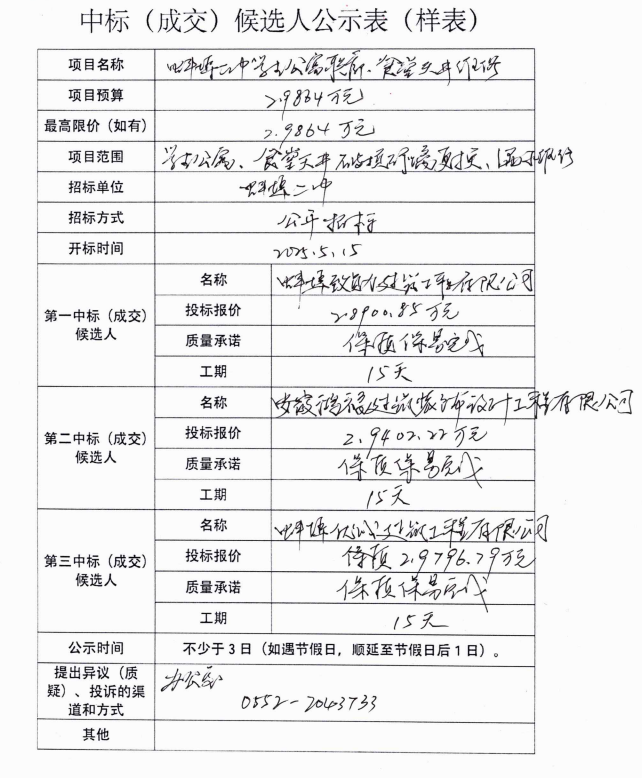 中标（成交）候选人公示表（样表）
项目名称 蚌埠二中学生公寓 、食堂天井维修
项目预算 2.9864万元
最高限价（如有） 2.9864万元
项目范围 学生公寓、食堂天井
招标单位 蚌埠二中
招标方式 公开招标
开标时间 2025.5.15
第一中标（成交）候选人
名称 蚌埠 建筑工程有限公司
投标报价 2.8900.85万元
质量承诺 保质保量完成
工期 15天
第二中标（成交）候选人
名称 安徽 建筑装饰设计工程有限公司
投标报价 2.9402.22万元
质量承诺 保质保量完成
工期 15天
第三中标（成交）候选人
名称 蚌埠 建筑工程有限公司
投标报价 保质 2.9796.79万元
质量承诺 保质保量完成
工期 15天
公示时间 不少于3日（如遇节假日，顺延至节假日后1日）。
提出异议（质疑）、投诉的渠道和方式 办公室
0552-2043733
其他